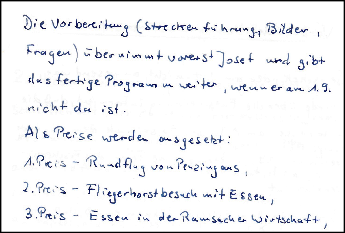 Die Vorbereitung (Streckenführung, Bilder,
Fragen) übernimmt vorerst Josef und gibt
das fertige Programm weiter, wenn er am 1.9.
nicht da ist.
Als Preise werden ausgesetzt:
1. Preis - Rundflug von Penzing aus,
2. Preis - Fliegerhorstbesuch mit Essen,
3. Preis - Essen in der Ramsacher Wirtschaft,